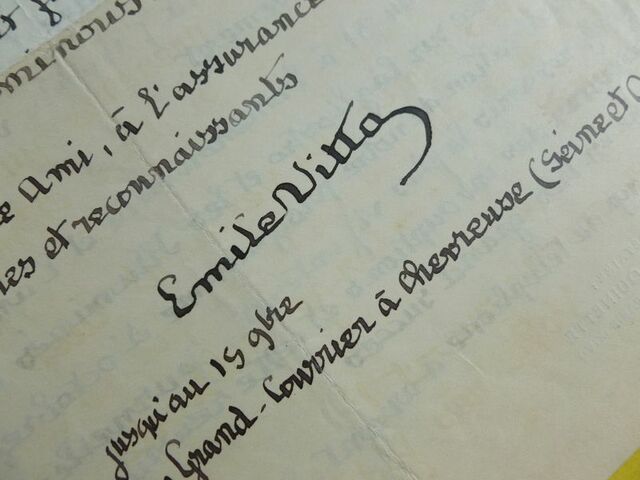 minous
Ami, à l'assurance
et reconnaissants
Emile Vitta
jusqu'au 15 9bre
Grand-Courrier à Chevreuse (Seine et O